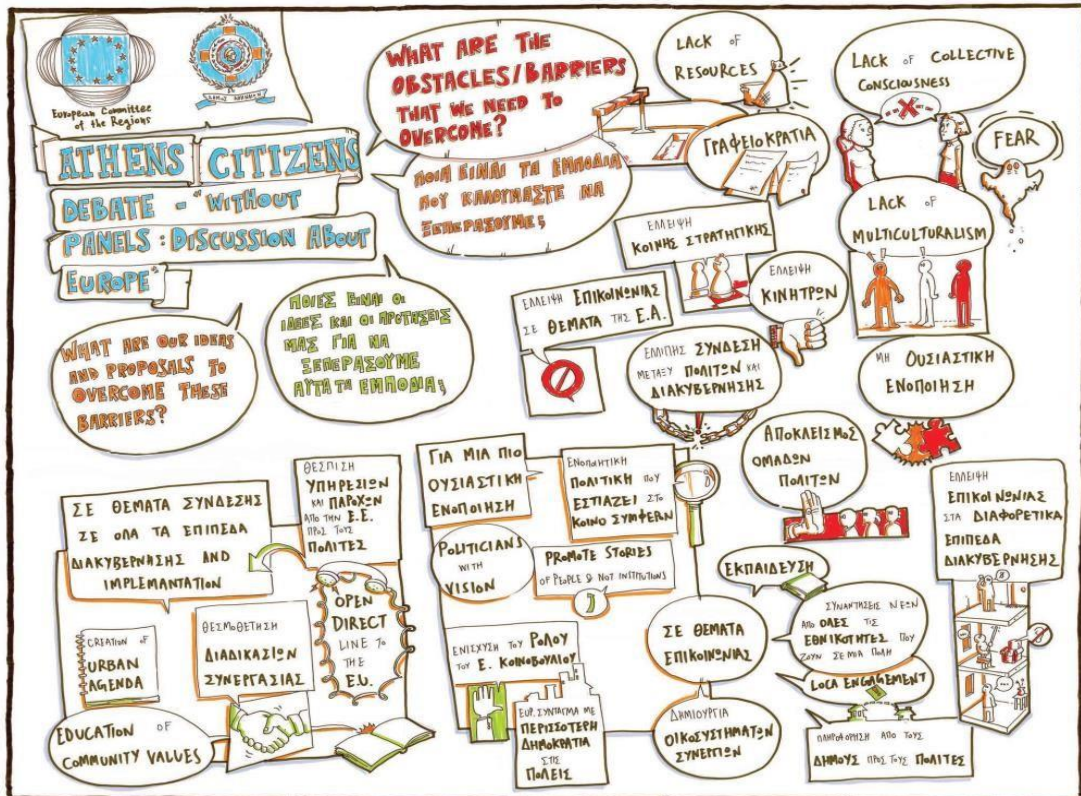 European Committee
of the Regions
ΔΗΜΟΣ ΑΘΗΝΑΙΩΝ
ATHENS CITIZENS
DEBATE - "WITHOUT
PANELS: DISCUSSION ABOUT
EUROPE"
WHAT ARE THE
OBSTACLES/BARRIERS
THAT WE NEED TO
OVERCOME?
ΠΟΙΑ ΕΙΝΑΙ ΤΑ ΕΜΠΟΔΙΑ
ΠΟΥ ΚΑΛΟΥΜΑΣΤΕ ΝΑ
ΞΕΠΕΡΑΣΟΥΜΕ;
LACK OF
RESOURCES
ΓΡΑΦΕΙΟΚΡΑΤΙΑ
LACK OF COLLECTIVE
CONSCIOUSNESS
FEAR
LACK OF
MULTICULTURALISM
ΕΛΛΕΙΨΗ
ΚΟΙΝΗΣ ΣΤΡΑΤΗΓΙΚΗΣ
ΕΛΛΕΙΨΗ
ΚΙΝΗΤΡΩΝ
ΕΛΛΕΙΨΗ ΕΠΙΚΟΙΝΩΝΙΑΣ
ΣΕ ΘΕΜΑΤΑ ΤΗΣ Ε.Α.
ΕΛΛΙΠΗΣ ΣΥΝΔΕΣΗ
ΜΕΤΑΞΥ ΠΟΛΙΤΩΝ ΚΑΙ
ΔΙΑΚΥΒΕΡΝΗΣΗΣ
ΜΗ ΟΥΣΙΑΣΤΙΚΗ
ΕΝΟΠΟΙΗΣΗ
ΑΠΟΚΛΕΙΣΜΟΣ
ΟΜΑΔΩΝ
ΠΟΛΙΤΩΝ
ΕΛΛΕΙΨΗ
ΕΠΙΚΟΙΝΩΝΙΑΣ
ΣΤΑ ΔΙΑΦΟΡΕΤΙΚΑ
ΕΠΙΠΕΔΑ
ΔΙΑΚΥΒΕΡΝΗΣΗΣ
WHAT ARE OUR IDEAS
AND PROPOSALS TO
OVERCOME THESE
BARRIERS?
ΠΟΙΕΣ ΕΙΝΑΙ ΟΙ
ΙΔΕΕΣ ΚΑΙ ΟΙ ΠΡΟΤΑΣΕΙΣ
ΜΑΣ ΓΙΑ ΝΑ
ΞΕΠΕΡΑΣΟΥΜΕ
ΑΥΤΑ ΤΑ ΕΜΠΟΔΙΑ;
ΣΕ ΘΕΜΑΤΑ ΣΥΝΔΕΣΗΣ
ΣΕ ΟΛΑ ΤΑ ΕΠΙΠΕΔΑ
ΔΙΑΚΥΒΕΡΝΗΣΗΣ AND
IMPLEMANTATION
ΘΕΣΠΙΣΗ
ΥΠΗΡΕΣΙΩΝ
ΚΑΙ ΠΑΡΟΧΩΝ
ΑΠΟ ΤΗΝ Ε.Ε.
ΠΡΟΣ ΤΟΥΣ
ΠΟΛΙΤΕΣ
OPEN
DIRECT
LINE TO
THE
E.U.
CREATION OF
URBAN
AGENDA
ΘΕΣΜΟΘΕΤΗΣΗ
ΔΙΑΔΙΚΑΣΙΩΝ
ΣΥΝΕΡΓΑΣΙΑΣ
EDUCATION OF
COMMUNITY VALUES
ΓΙΑ ΜΙΑ ΠΙΟ
ΟΥΣΙΑΣΤΙΚΗ
ΕΝΟΠΟΙΗΣΗ
ΕΝΟΠΟΙΗΤΙΚΗ
ΠΟΛΙΤΙΚΗ ΠΟΥ
ΕΣΤΙΑΖΕΙ ΣΤΟ
ΚΟΙΝΟ ΣΥΜΦΕΡΩΝ
POLITICIANS
WITH
VISION
PROMOTE STORIES
OF PEOPLE & NOT INSTITUTIONS
ΕΝΙΣΧΥΣΗ ΤΟΥ ΡΟΛΟΥ
ΤΟΥ Ε. ΚΟΙΝΟΒΟΥΛΙΟΥ
ΕΥΡ. ΣΥΝΤΑΓΜΑ ΜΕ
ΠΕΡΙΣΣΟΤΕΡΗ
ΔΗΜΟΚΡΑΤΙΑ
ΣΤΙΣ
ΠΟΛΕΙΣ
ΣΕ ΘΕΜΑΤΑ
ΕΠΙΚΟΙΝΩΝΙΑΣ
ΕΚΠΑΙΔΕΥΣΗ
ΣΥΝΑΝΤΗΣΕΙΣ ΝΕΩΝ
ΑΠΟ ΟΛΕΣ ΤΙΣ
ΕΘΝΙΚΟΤΗΤΕΣ ΠΟΥ
ΖΟΥΝ ΣΕ ΜΙΑ ΠΟΛΗ
LOCA ENGAGEMENT
ΔΗΜΙΟΥΡΓΙΑ
ΟΙΚΟΣΥΣΤΗΜΑΤΩΝ
ΣΥΝΕΡΓΙΩΝ
ΠΛΗΡΟΦΟΡΗΣΗ ΑΠΟ ΤΟΥΣ
ΔΗΜΟΥΣ ΠΡΟΣ ΤΟΥΣ ΠΟΛΙΤΕΣ